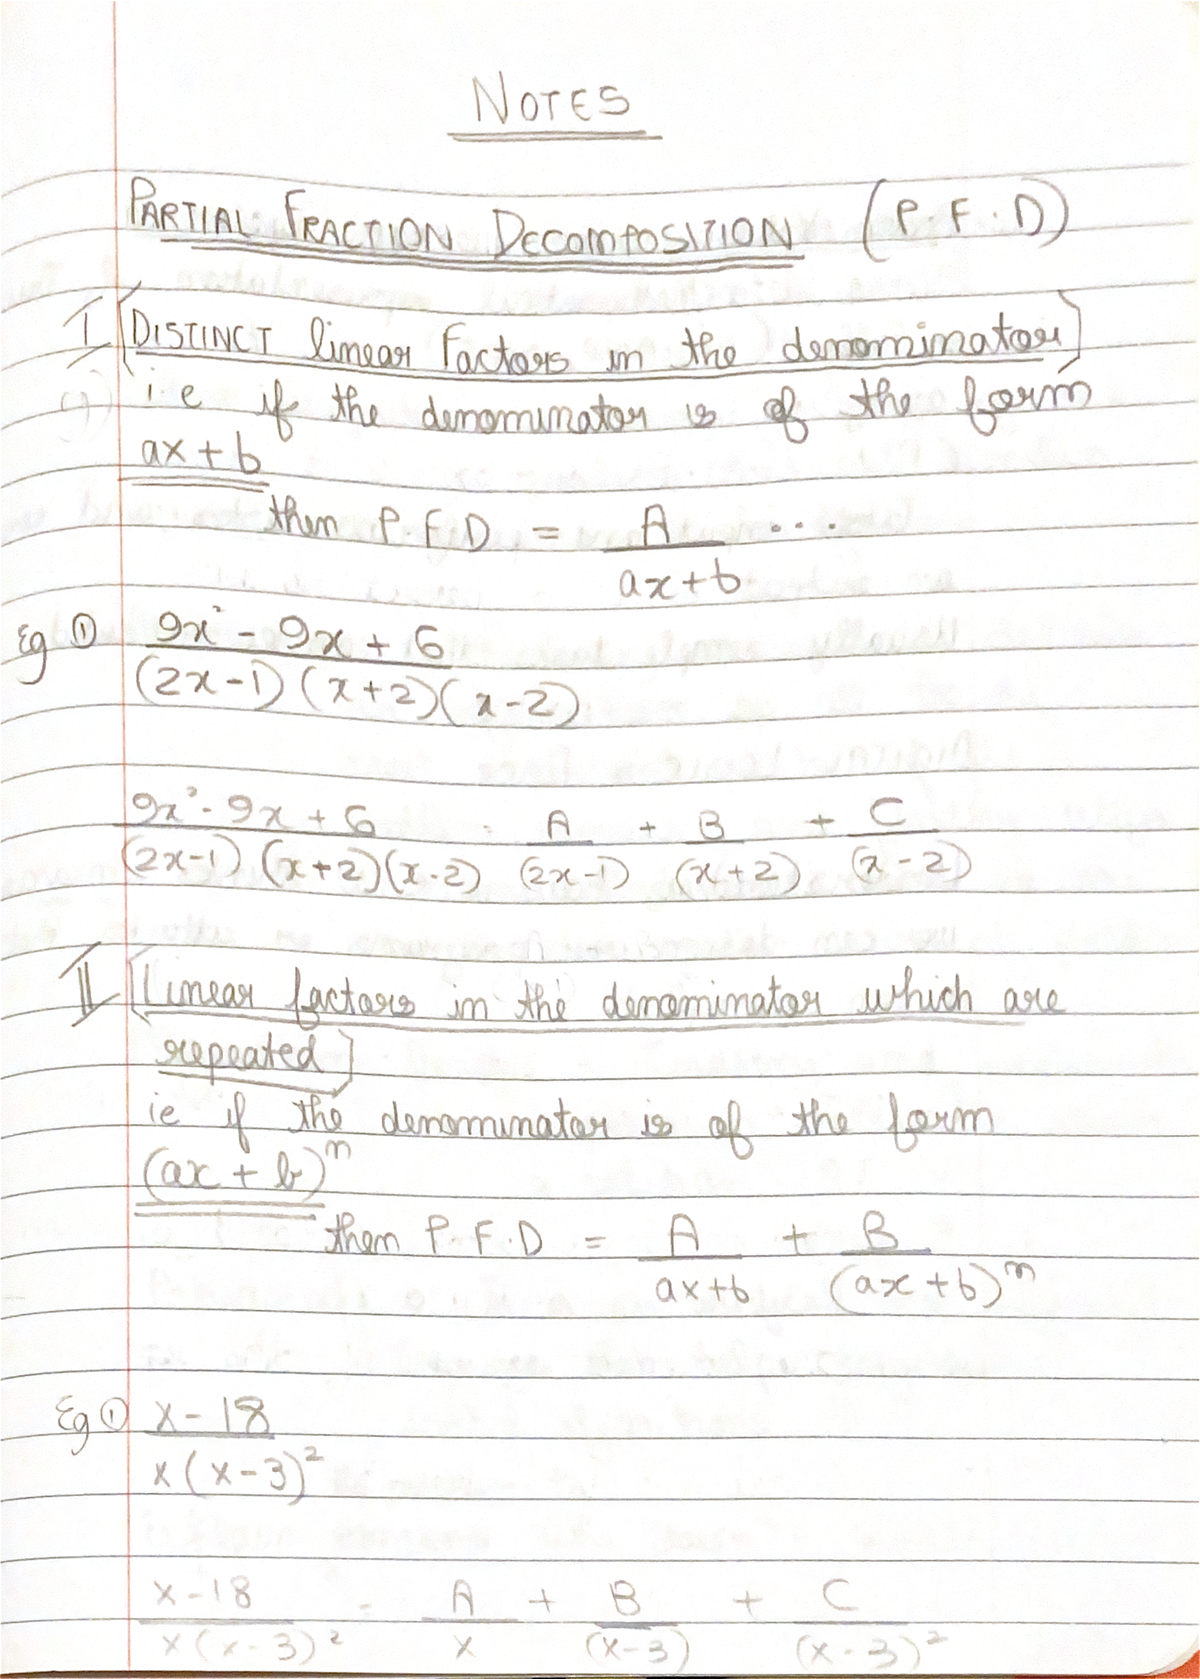 NOTES
PARTIAL FRACTION DECOMPOSITION (P.F.D)
I [DISTINCT linear factors in the denominator]
i.e if the denominator is of the form
ax+b
then P.F.D = A/(ax+b) ...
Eg ① (9x² - 9x + 6)/((2x-1)(x+2)(x-2))
(9x² - 9x + 6)/((2x-1)(x+2)(x-2)) = A/(2x-1) + B/(x+2) + C/(x-2)
II [Linear factors in the denominator which are
repeated]
ie if the denominator is of the form
(ax+b)ⁿ
then P.F.D = A/(ax+b) + B/(ax+b)ⁿ
Eg ① (x-18)/(x(x-3)²)
(x-18)/(x(x-3)²) = A/x + B/(x-3) + C/(x-3)²